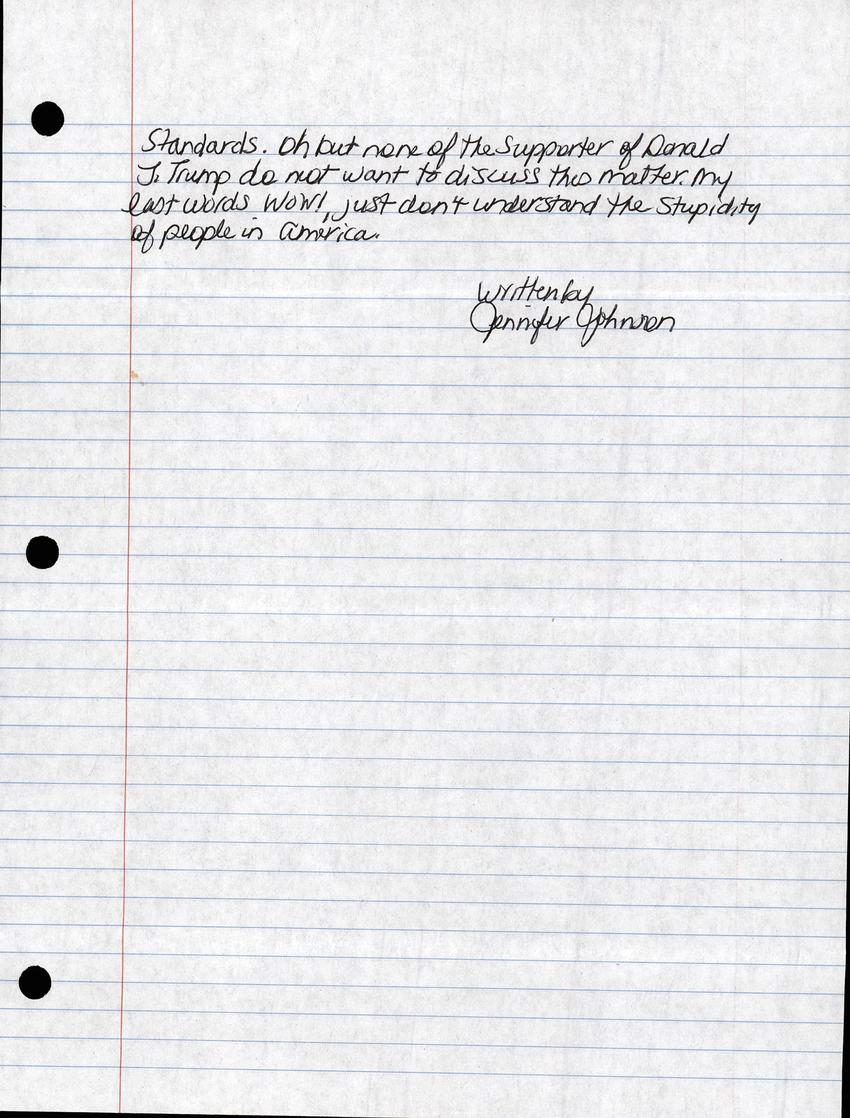 Standards. Oh but none of the Supporter of Donald
J. Trump do not want to discuss this matter. My
last words WOW!, just don't understand the Stupidity
of people in America.
Written by
Jennifer Johnson